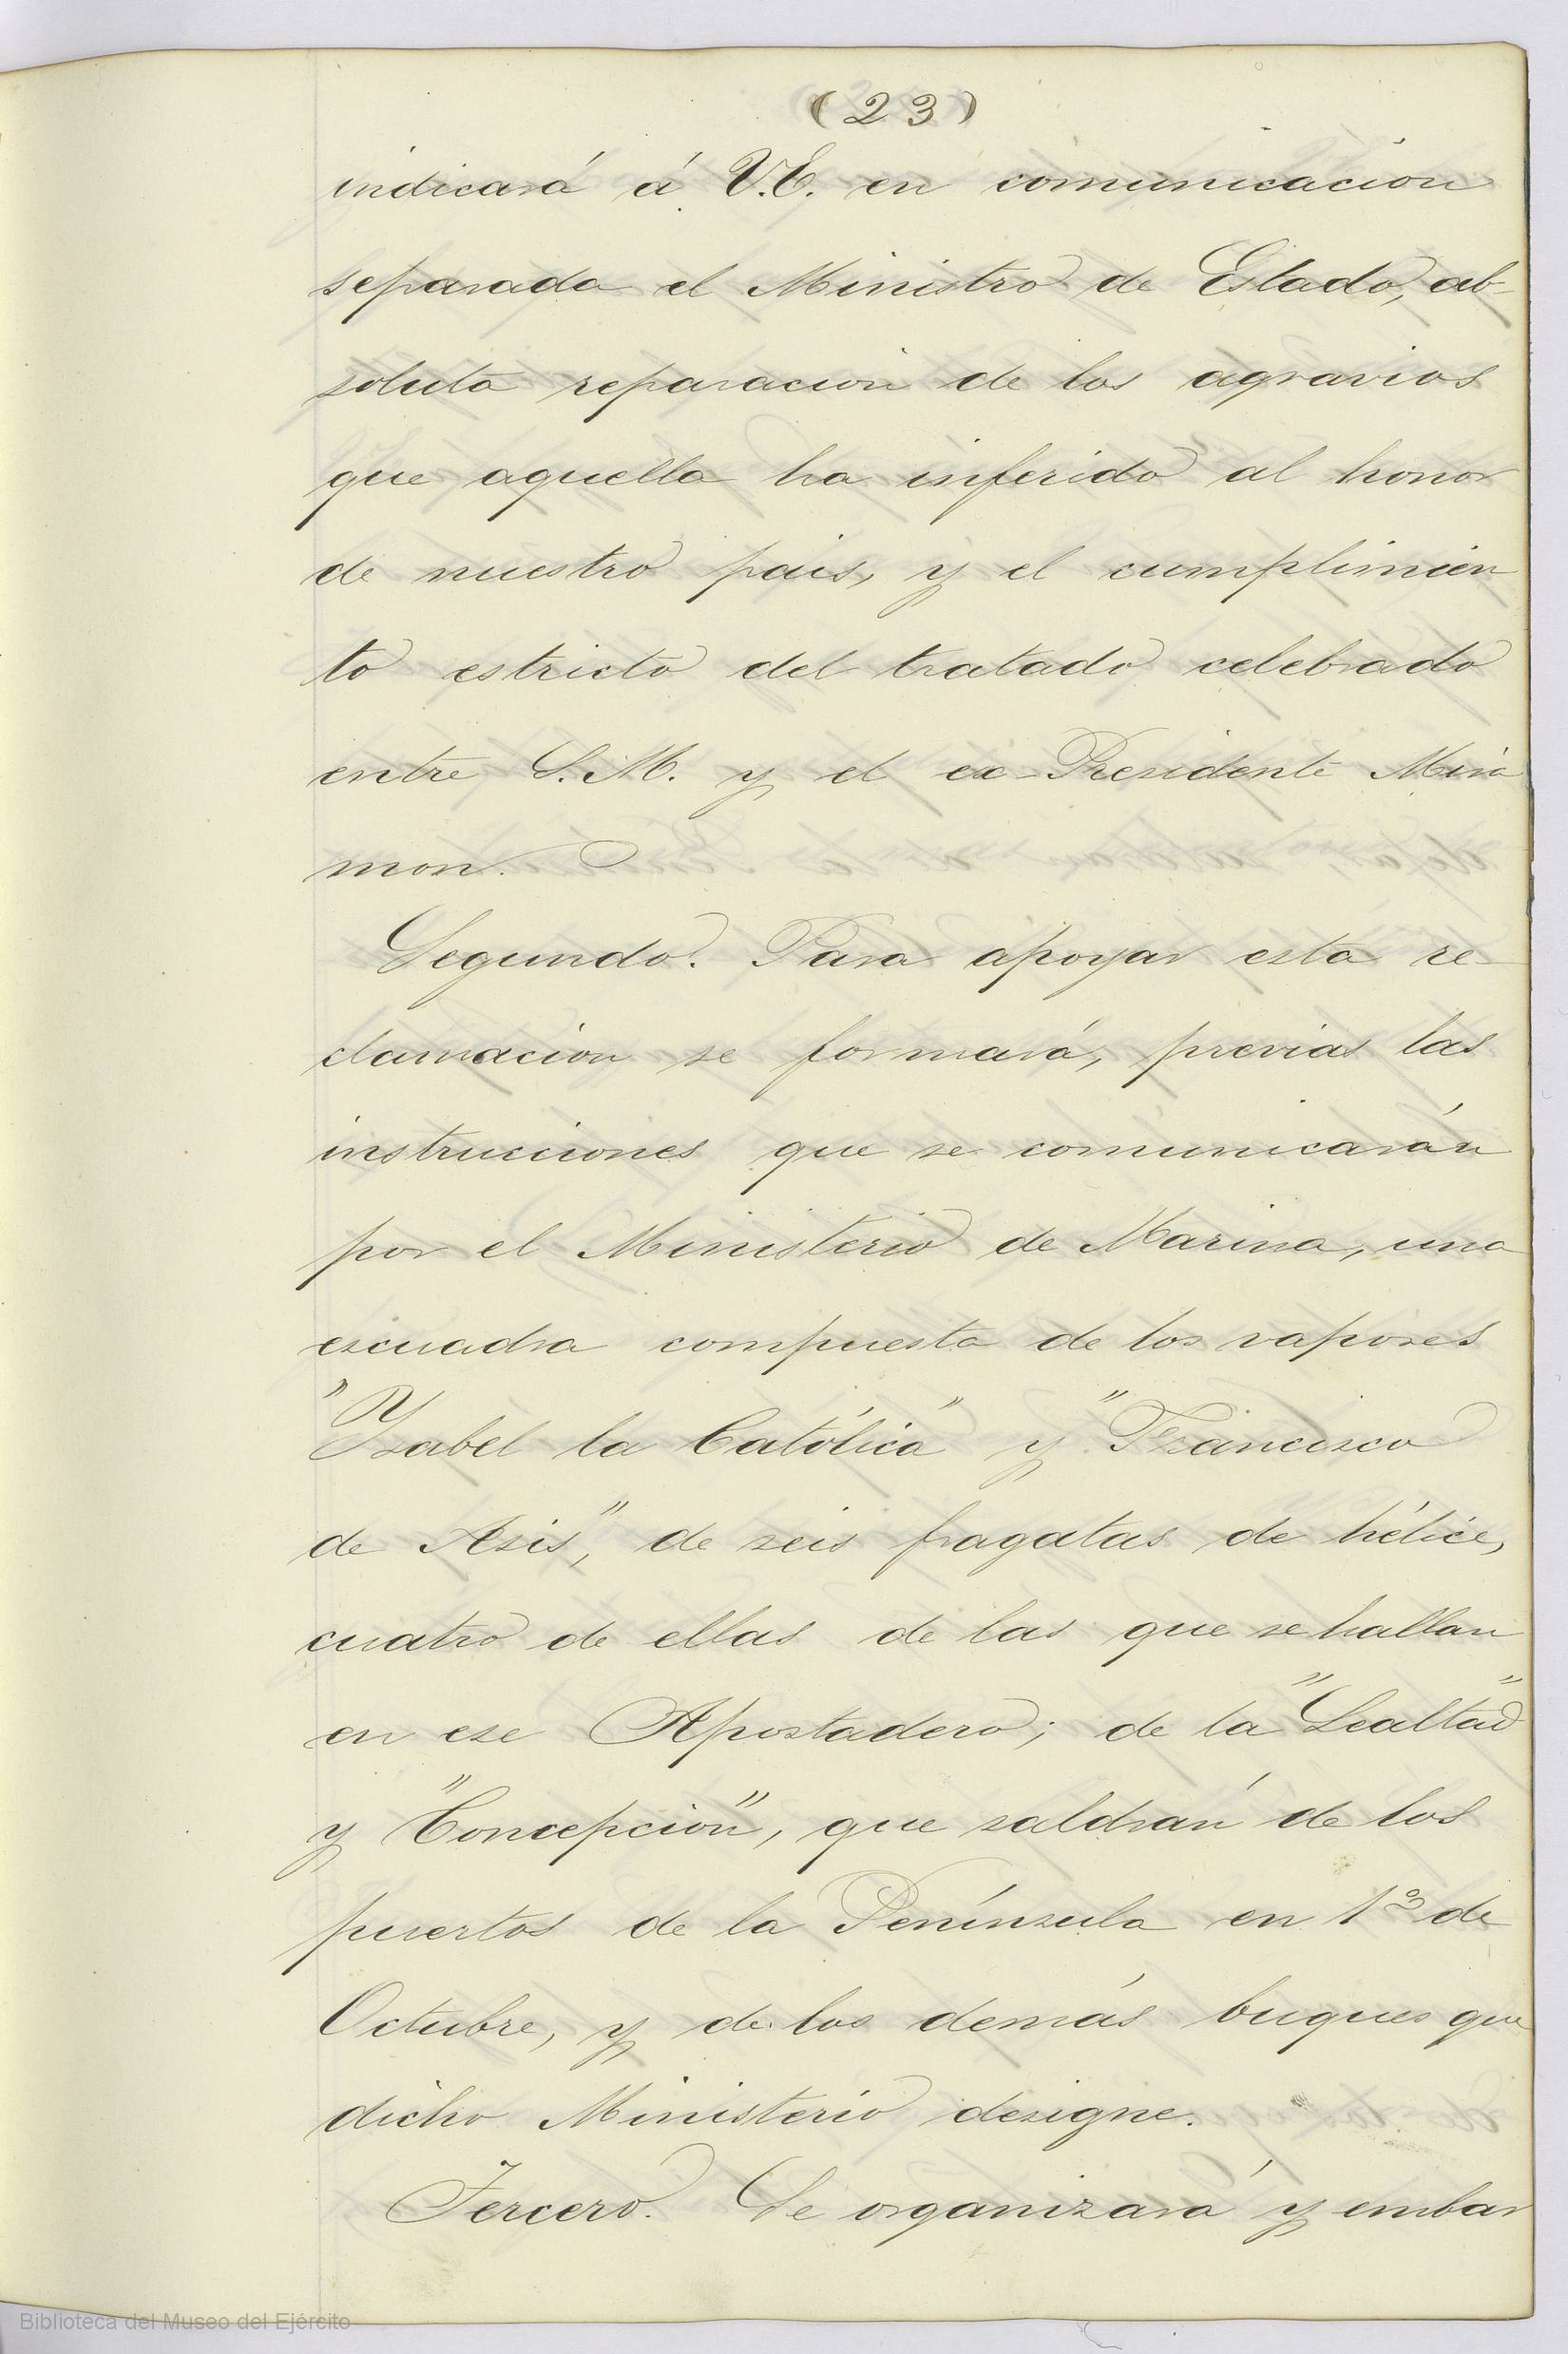 (23)
indicará á V.E. en comunicacion
separada el Ministro de Estado, ab-
soluta reparacion de los agravios
que aquella ha inferido al honor
de nuestro pais, y el cumplimien
to estricto del tratado celebrado
entre S.M. y el ex-Presidente Mira
mon.
Segundo. Para apoyar esta re-
clamacion se formará, previas las
instrucciones que se comunicarán
por el Ministerio de Marina, una
escuadra compuesta de los vapores
"Ysabel la Católica" y "Francisco
de Asis", de seis fragatas de hélice,
cuatro de ellas de las que se hallan
en ese Apostadero; de la "Lealtad"
y "Concepcion", que saldrán de los
puertos de la Península en 1º de
Octubre, y de los demás buques que
dicho Ministerio designe.
Tercero. Se organizará y embar
Biblioteca del Museo del Ejército